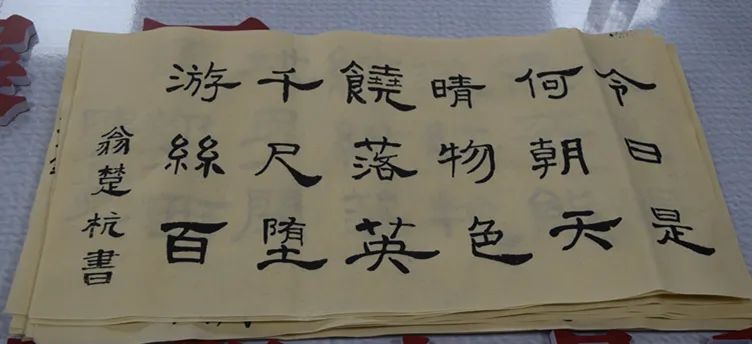 今日是
何朝天
晴物色
饒落英
千尺堕
游絲百
翁楚杭書